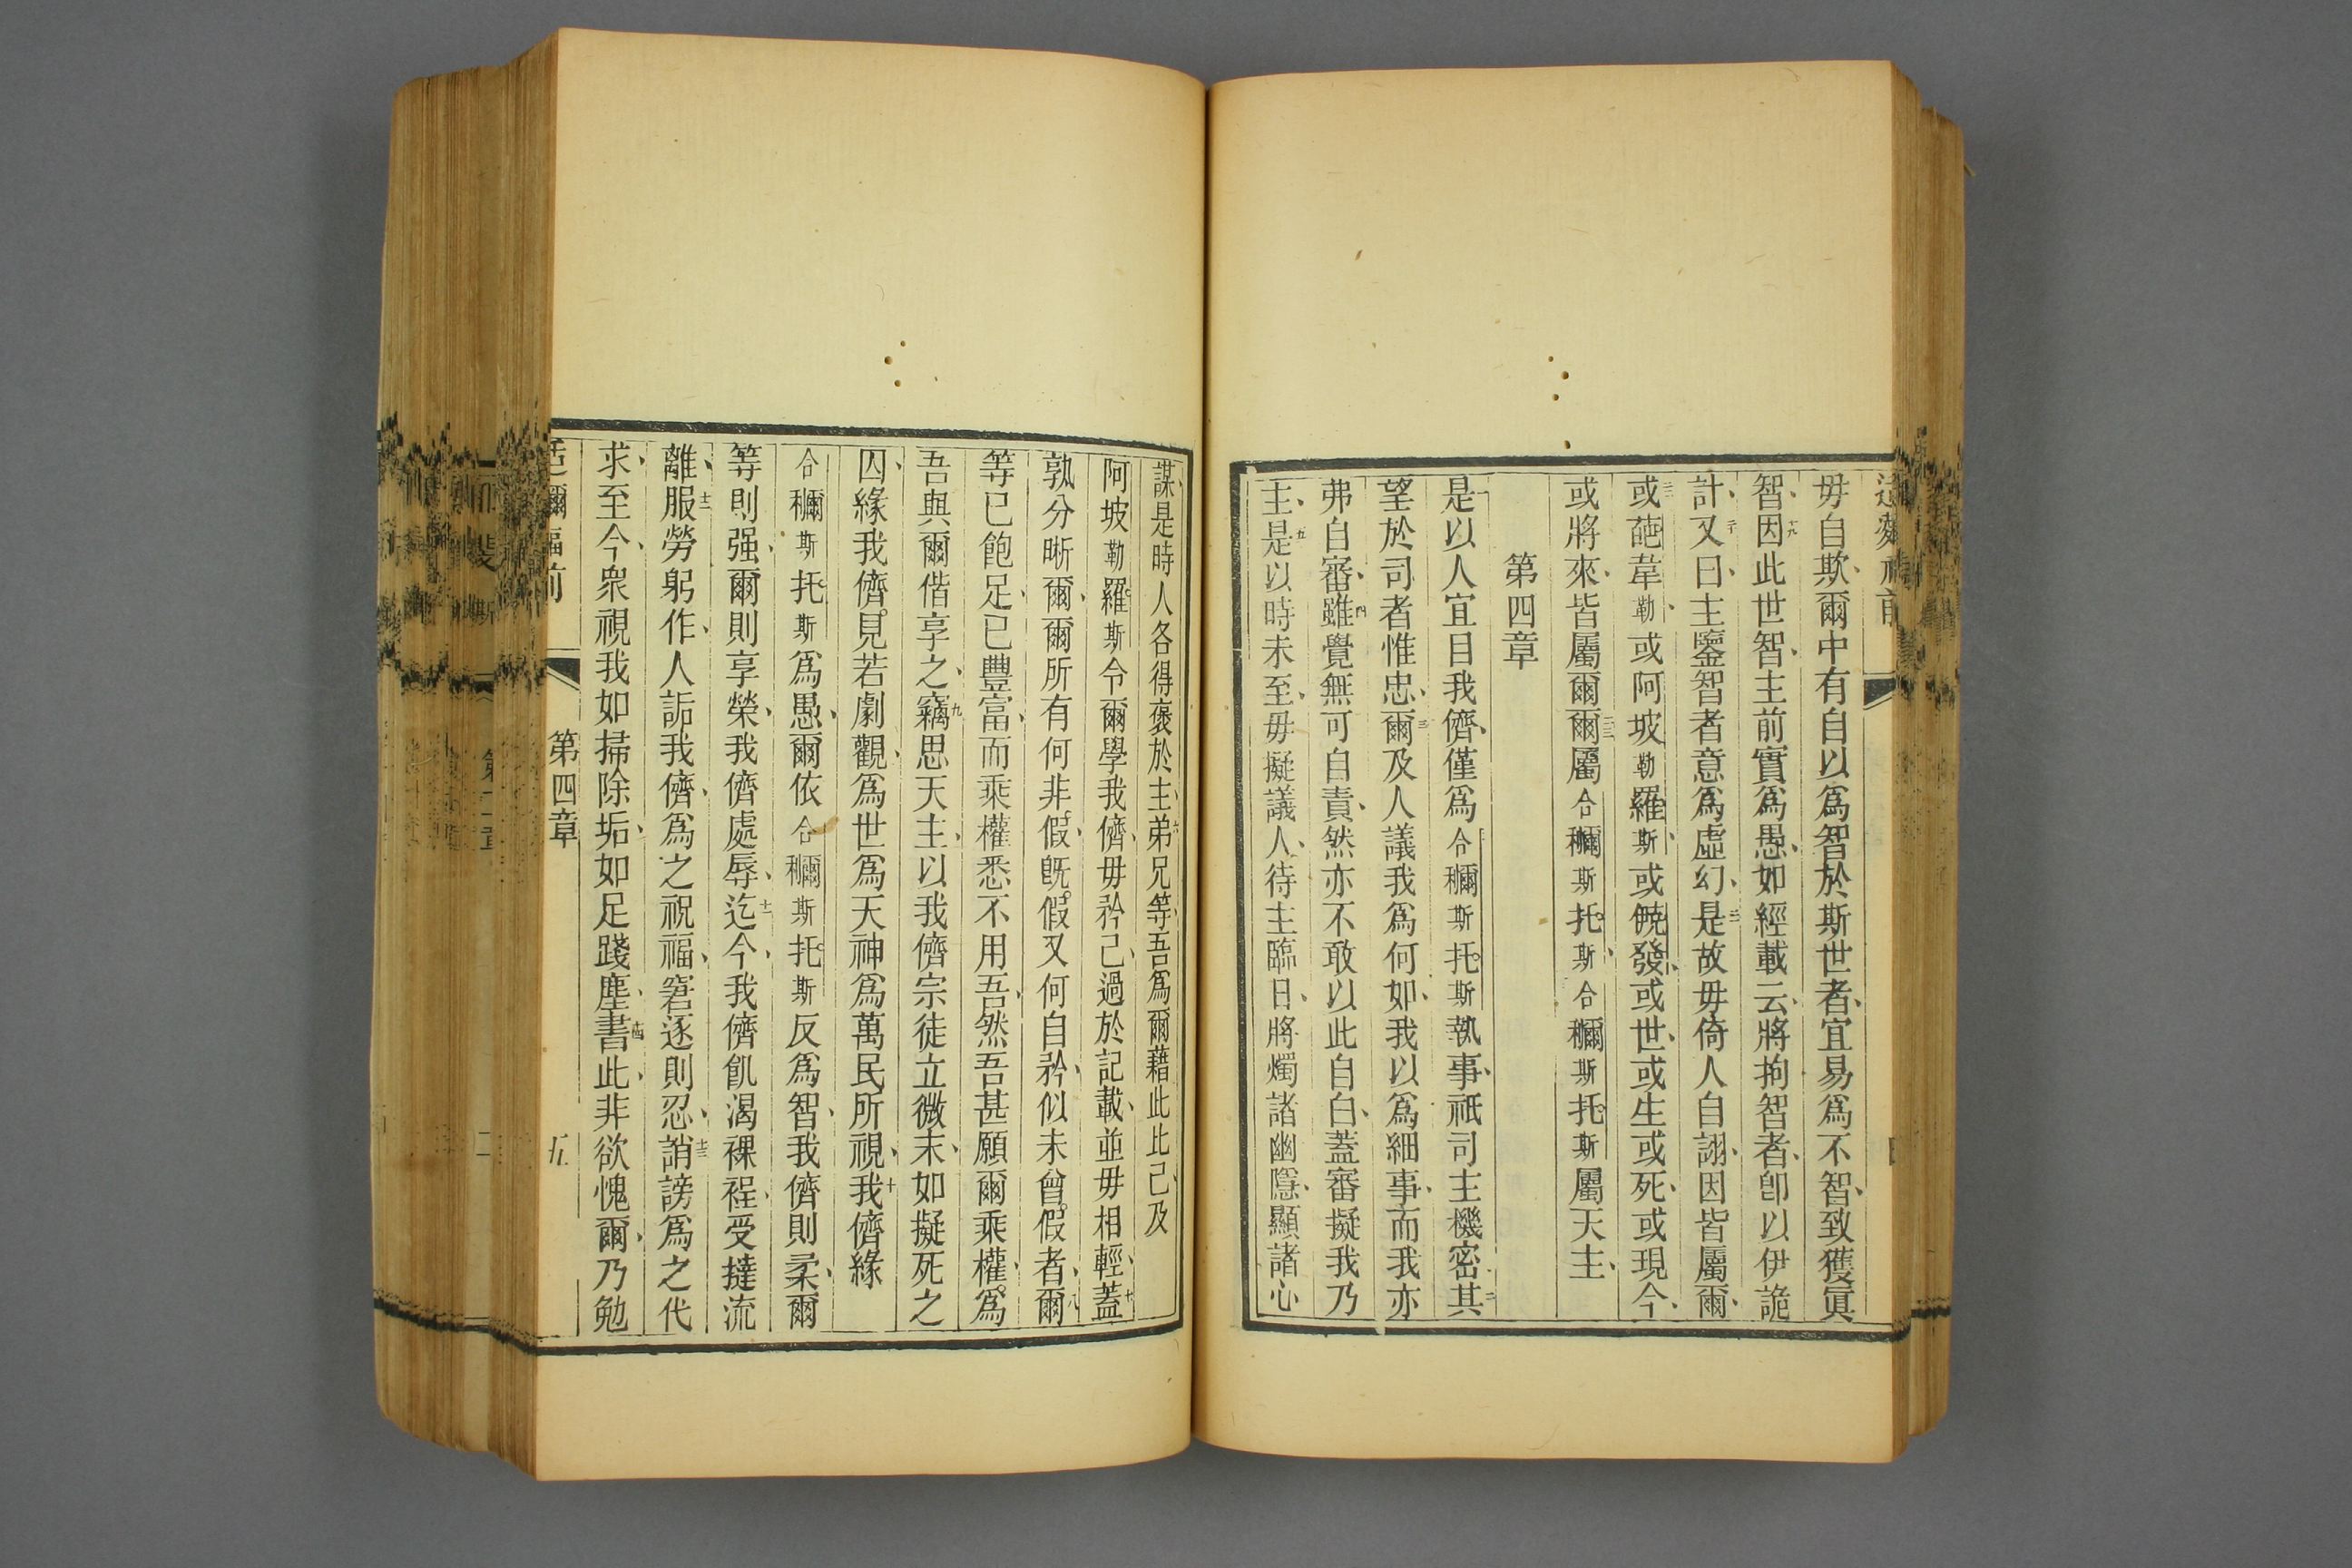 毋自欺爾中有自以爲智於斯世者宜易爲不智致獲眞
智十九因此世智主前實爲愚如經載云將拘智者卽以伊詭
計二十又曰主鑒智者意爲虛幻是故毋倚人自詡因皆屬爾
或葩韋勒或阿坡勒羅斯或世或生或死或現今
或將來皆屬爾爾屬合穪斯托斯合穪斯托斯屬天主
第四章
是以人宜目我儕僅爲合穪斯托斯執事祇司主機密二其
望於司者惟忠三爾及人議我爲何如我以爲細事而我亦
弗自審四雖覺無可自責然亦不敢以此自白蓋審擬我乃
主五是以時未至毋擬議人待主臨日將燭諸幽隱顯諸心
謀是時人各得褒於主六弟兄等吾爲爾藉此比己及
阿坡勒羅斯令爾學我儕毋矜己過於記載並毋相輕七蓋
孰分晰爾爾所有何非假旣假又何自矜似未曾假者八爾
等已飽足已豐富而乘權悉不用吾然吾甚願爾乘權爲
吾與爾偕享之九竊思天主以我儕宗徒立微末如擬死之
囚緣我儕見若劇觀爲世爲天神爲萬民所視十我儕緣
合穪斯托斯爲愚爾依合穪斯托斯反爲智我儕則柔爾
等則强爾則享榮我儕處辱十一迄今我儕飢渴裸裎受撻流
離十二服勞躬作人詬我儕爲之祝福窘逐則忍十三誚謗爲之代
求至今衆視我如掃除垢如足踐塵十四書此非欲愧爾乃勉
第四章
五